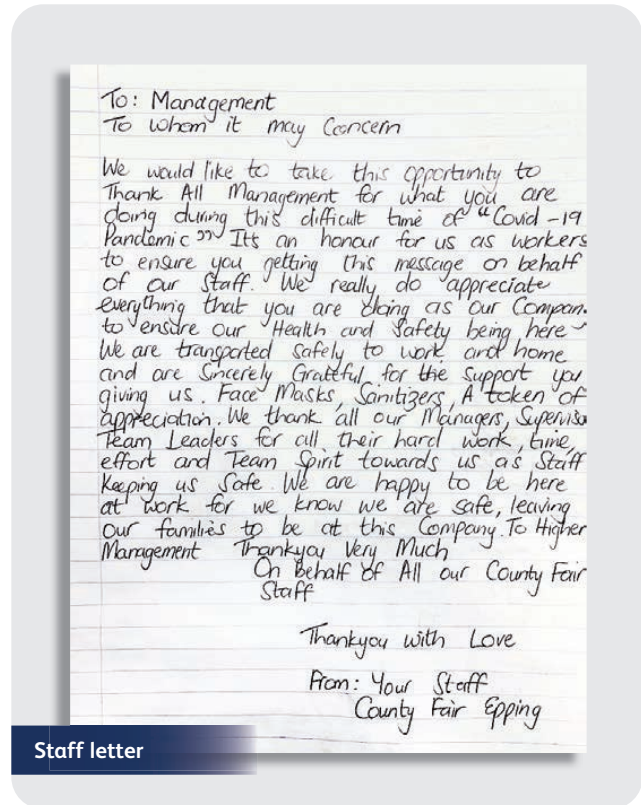 To: Management
To whom it may Concern
We would like to take this opportunity to
Thank All Management for what you are
doing during this difficult time of "Covid-19
Pandemic"" It's an honour for us as workers
to ensure you getting this message on behalf
of our Staff. We really do appreciate
everything that you are doing as our Compan
to ensure our Health and Safety being here
We are transported safely to work and home
and are Sincerely Grateful for the support you
giving us. Face Masks, Sanitizers, A token of
appreciation. We thank all our Managers, Superviso
Team Leaders for all their hard work, time,
effort and Team Spirit towards us as Staff
Keeping us Safe. We are happy to be here
at work for we know we are safe, leaving
our families to be at this Company. To Higher
Management Thankyou Very Much
On Behalf of All our County Fair
Staff
Thankyou with Love
From: Your Staff
County Fair Epping
Staff letter